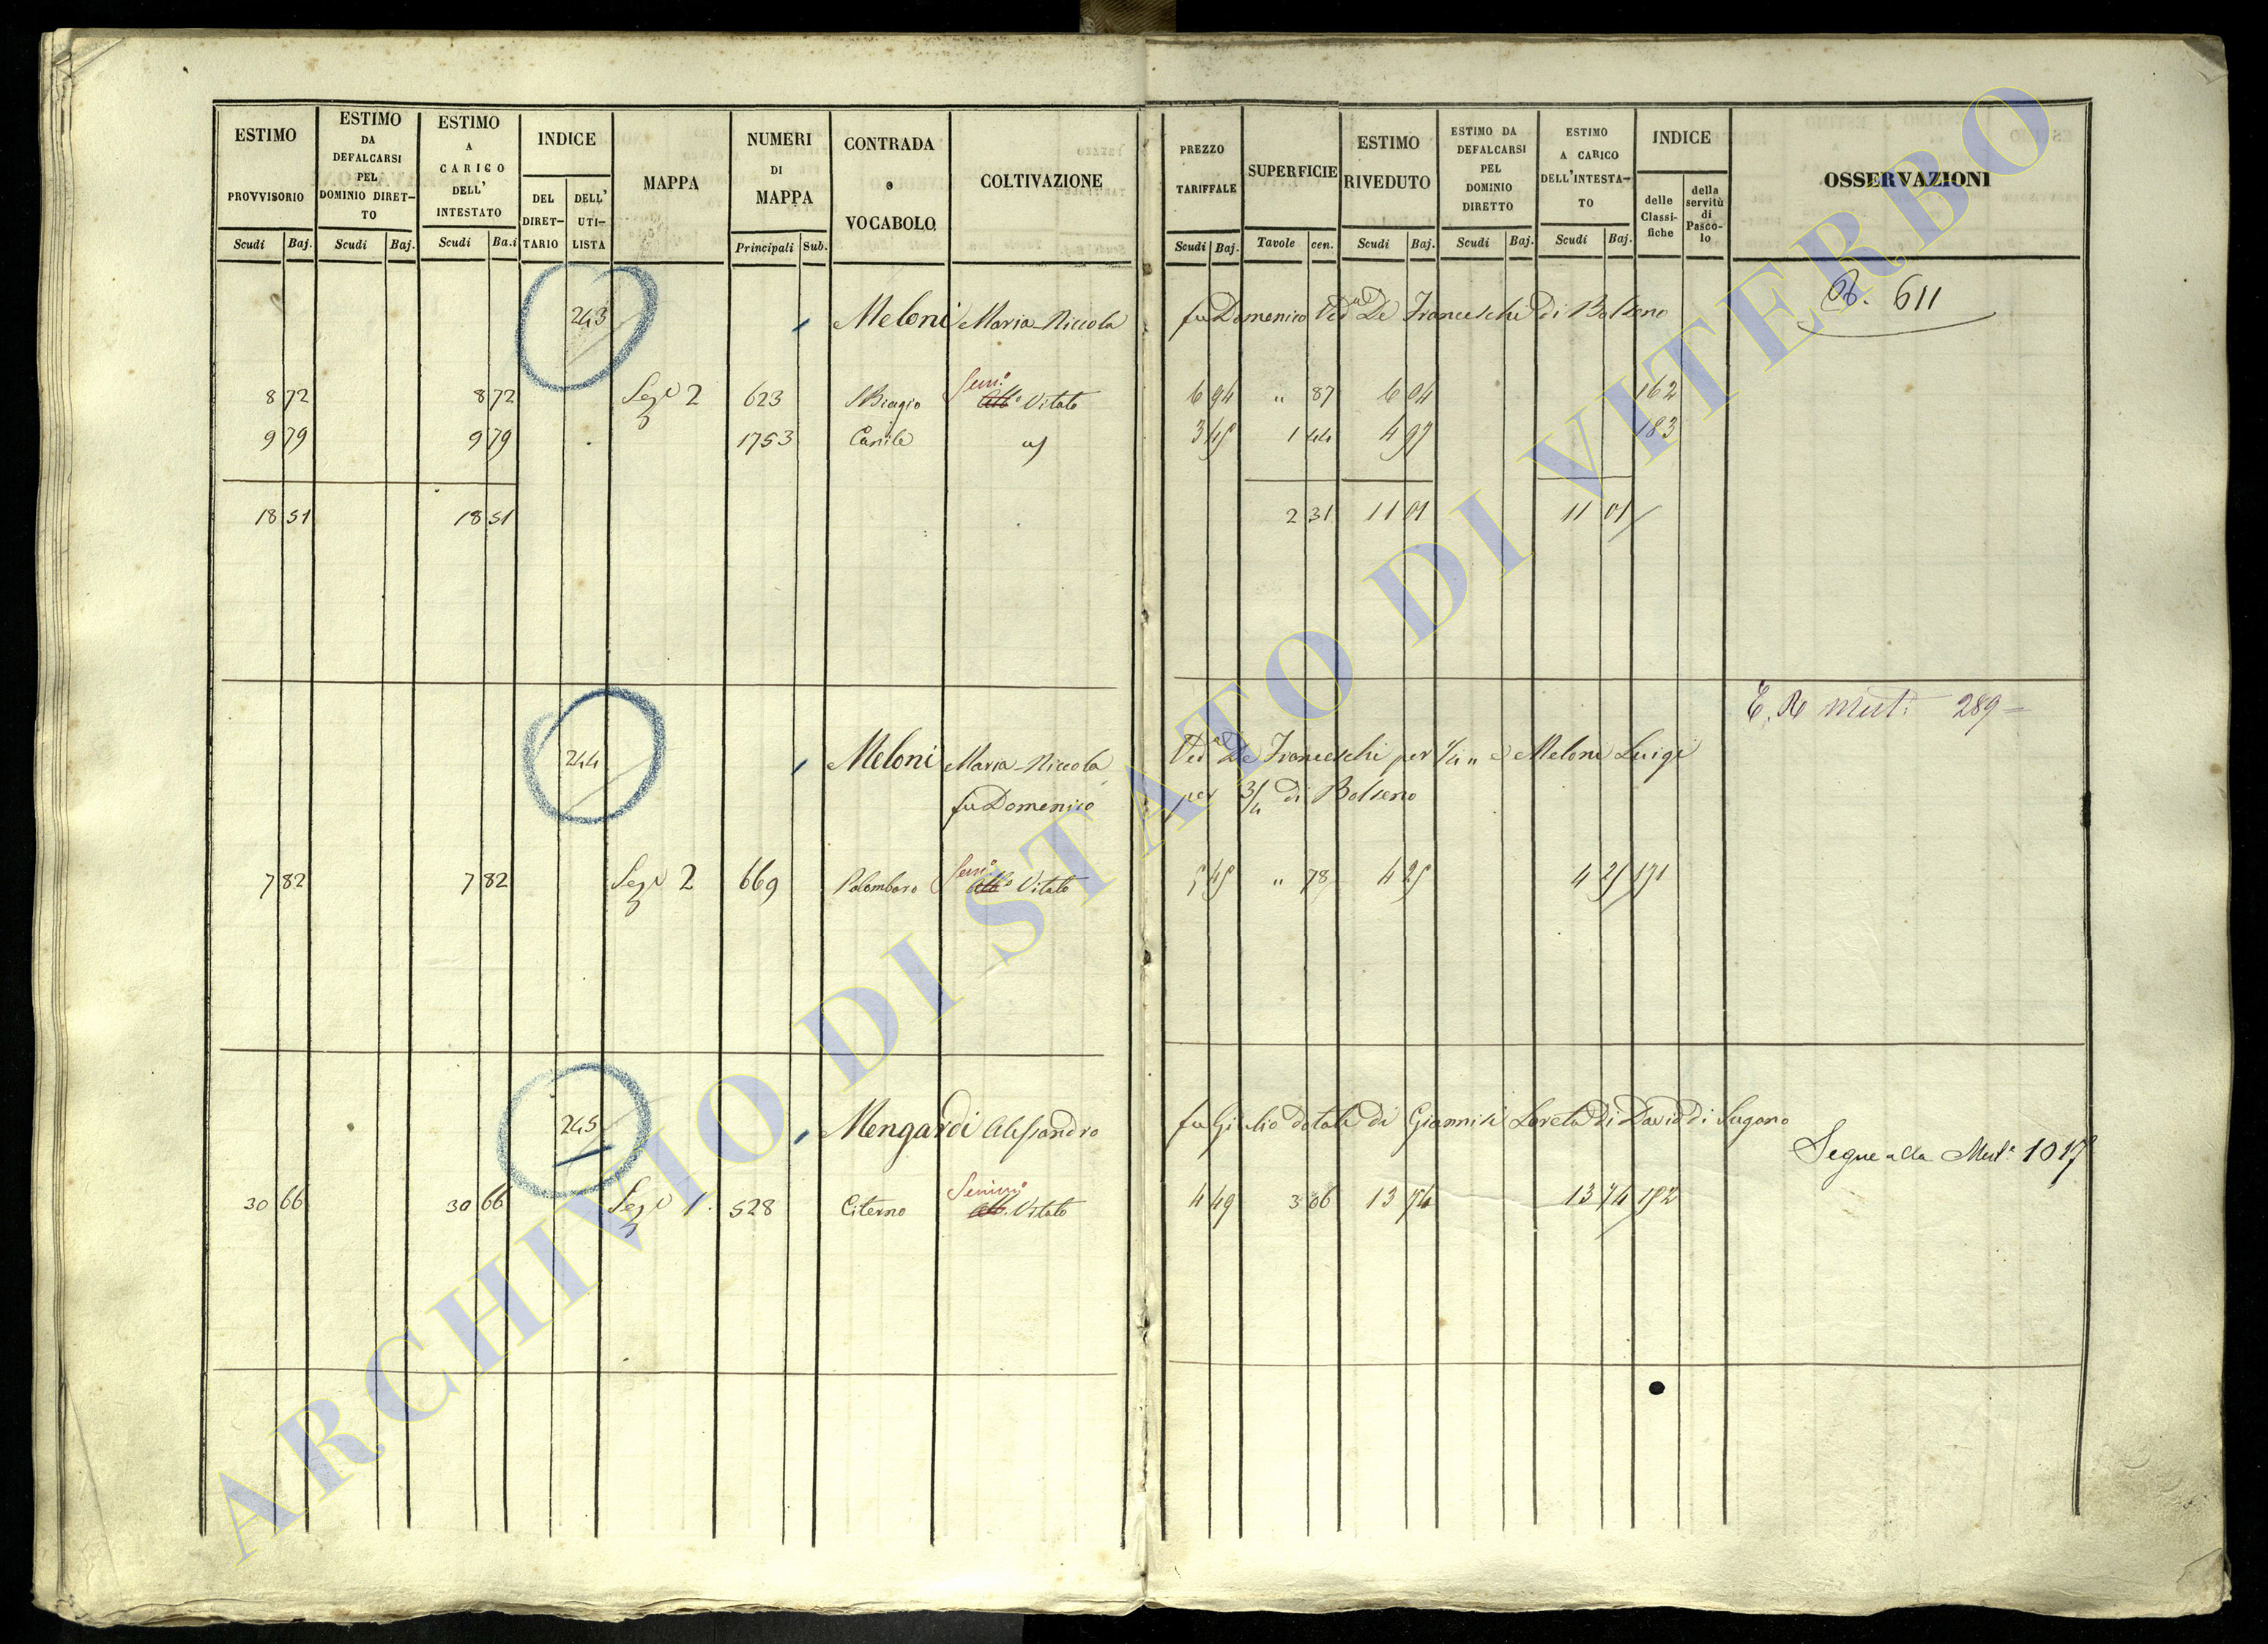 ESTIMO PROVVISORIO Scudi Baj.
ESTIMO DA DEFALCARSI PEL DOMINIO DIRET- TO Scudi Baj.
ESTIMO A CARICO DELL' INTESTATO Scudi Ba.i
INDICE DEL DIRET- TARIO DELL' UTI- LISTA
MAPPA
NUMERI DI MAPPA Principali Sub.
CONTRADA o VOCABOLO
COLTIVAZIONE
PREZZO TARIFFALE Scudi Baj.
SUPERFICIE Tavole cen.
ESTIMO RIVEDUTO Scudi Baj.
ESTIMO DA DEFALCARSI PEL DOMINIO DIRETTO Scudi Baj.
ESTIMO A CARICO DELL'INTESTA- TO Scudi Baj.
INDICE delle Classi- fiche della servitù di Pasco- lo
OSSERVAZIONI
243 Meloni Maria Niccola fu Domenico Ved.a De Franceschi di Bolseno 611
8 72 8 72 Sez.e 2 623 S Biagio Sem.o Vitato 6 94 " 87 6 04 162
9 79 9 79 1753 Canile 3 45 1 44 4 97 183
18 51 18 51 2 31 11 01 11 01
E. R Mut: 289
244 Meloni Maria Niccola Ved.a De Franceschi per 1/4 " e Meloni Luigi
fu Domenico per 3/4 di Bolseno
7 82 7 82 Sez.e 2 669 Palombaro Sem.o Vitato 5 45 " 78 4 25 4 25 171
245 Mengardi Alessandro fu Giulio dotale di Giannisi Loreta di David di Sugano
Segue alla Mut.a 1017
30 66 30 66 Sez.e 1. 528 Citerno Sem.o Vitato 4 49 3 06 13 74 13 74 182
ARCHIVIO DI STATO DI VITERBO